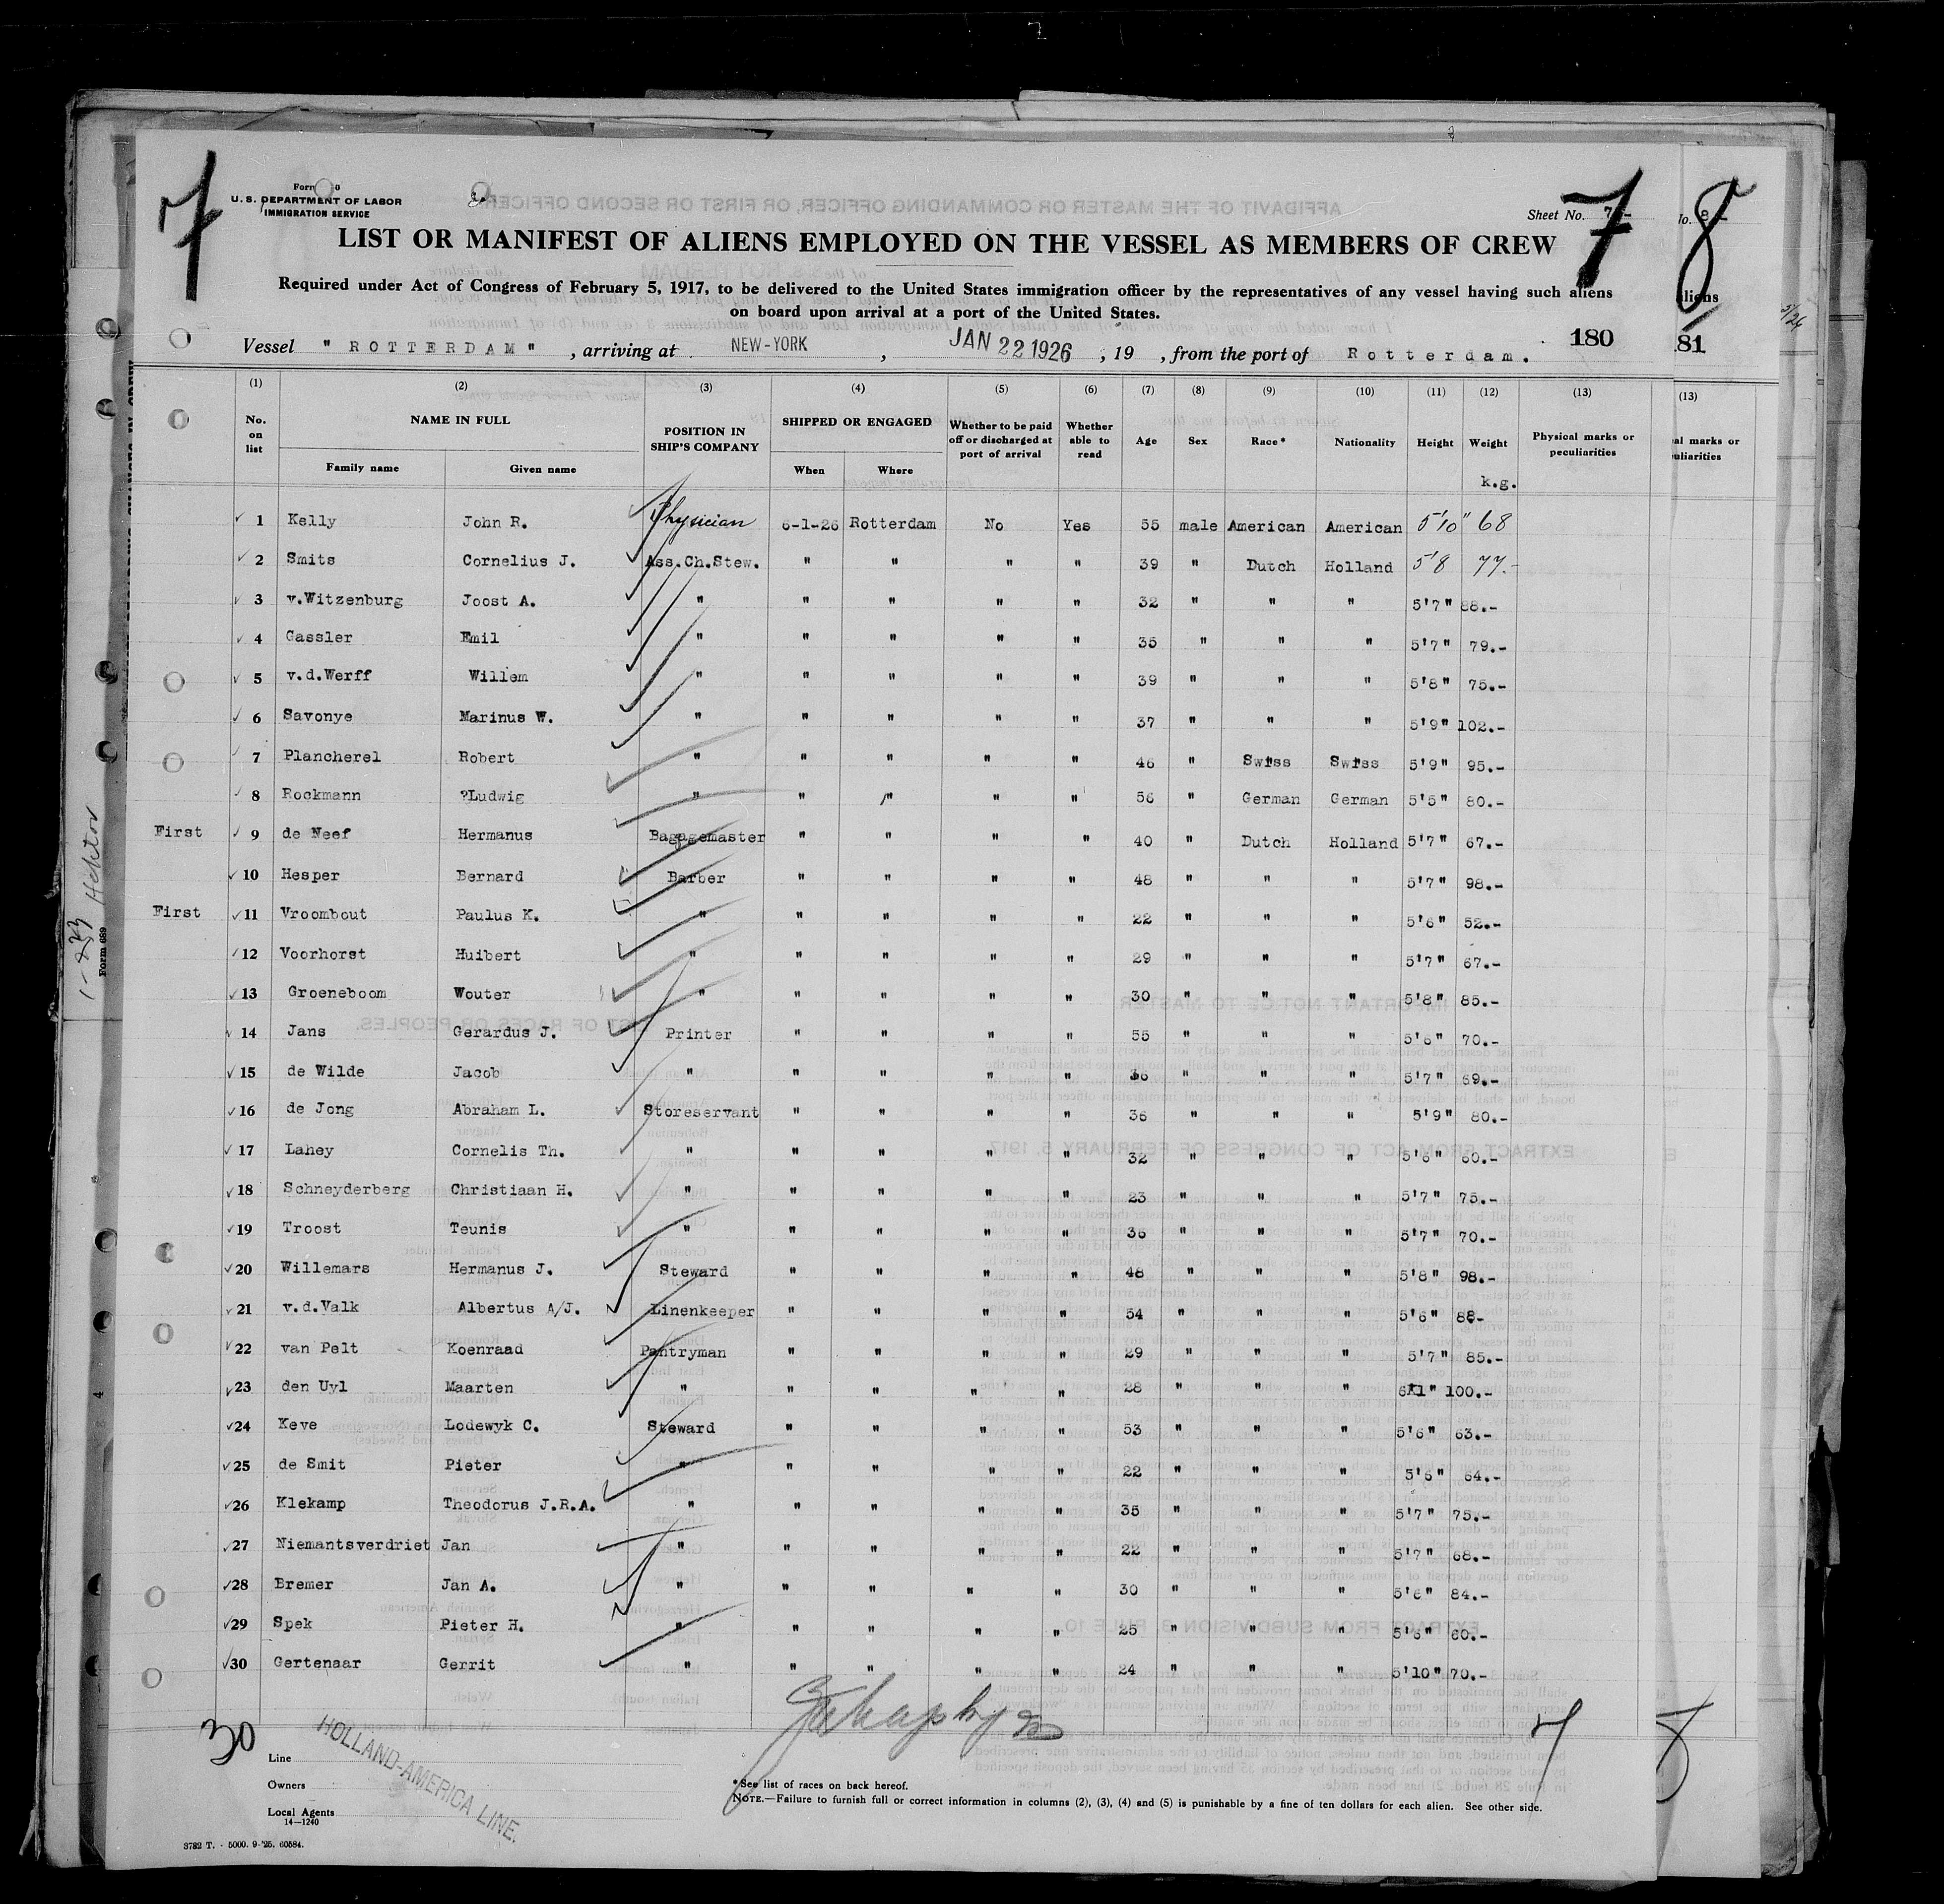 7
7
8
Form
U. S. DEPARTMENT OF LABOR
IMMIGRATION SERVICE
Sheet No. 7.-
No. 8.-
LIST OR MANIFEST OF ALIENS EMPLOYED ON THE VESSEL AS MEMBERS OF CREW
Required under Act of Congress of February 5, 1917, to be delivered to the United States immigration officer by the representatives of any vessel having such aliens
on board upon arrival at a port of the United States.
aliens
180
81
Vessel " ROTTERDAM " , arriving at NEW-YORK , JAN 22 1926 , 19 , from the port of Rotterdam.
(1) (2) (3) (4) (5) (6) (7) (8) (9) (10) (11) (12) (13) (13)
No. on list NAME IN FULL Family name Given name POSITION IN SHIP'S COMPANY SHIPPED OR ENGAGED When Where Whether to be paid off or discharged at port of arrival Whether able to read Age Sex Race* Nationality Height Weight Physical marks or peculiarities
al marks or
uliarities
k.g.
1 Kelly John R. Physician 6-1-26 Rotterdam No Yes 55 male American American 5'10" 68
2 Smits Cornelius J. Ass.Ch.Stew. " " " " 39 " Dutch Holland 5'8 77.-
3 v.Witzenburg Joost A. " " " " " 32 " " " 5'7" 88.-
4 Gassler Emil " " " " " 35 " " " 5'7" 79.-
5 v.d.Werff Willem " " " " " 39 " " " 5'8" 75.-
6 Savonye Marinus W. " " " " " 37 " " " 5'9" 102.-
7 Plancherel Robert " " " " " 46 " Swiss Swiss 5'9" 95.-
8 Rockmann ?Ludwig " " " " " 56 " German German 5'5" 80.-
First 9 de Neef Hermanus Bagagemaster " " " " 40 " Dutch Holland 5'7" 67.-
10 Hesper Bernard Barber " " " " 48 " " " 5'7" 98.-
First 11 Vroombout Paulus K. " " " " " 22 " " " 5'6" 52.-
12 Voorhorst Huibert " " " " " 29 " " " 5'7" 67.-
13 Groeneboom Wouter " " " " " 30 " " " 5'8" 85.-
14 Jans Gerardus J. Printer " " " " 55 " " " 5'6" 70.-
15 de Wilde Jacob " " " " " " " " 5'7" 69.-
16 de Jong Abraham L. Storeservant " " " " 36 " " " 5'9" 80.-
17 Lahey Cornelis Th. " " " " " 32 " " " 5'6" 60.-
18 Schneyderberg Christiaan H. " " " " " 23 " " " 5'7" 75.-
19 Troost Teunis " " " " " 36 " " " 5'7" 70.-
20 Willemars Hermanus J. Steward " " " " 48 " " " 5'8" 98.-
21 v.d.Valk Albertus A/J. Linenkeeper " " " " 54 " " " 5'6" 88-
22 van Pelt Koenraad Pantryman " " " " 29 " " " 5'7" 85.-
23 den Uyl Maarten " " " " " 28 " " " 100.-
24 Keve Lodewyk C. Steward " " " " 53 " " " 5'6" 63.-
25 de Smit Pieter " " " " " 22 " " " 5'6" 64.-
26 Klekamp Theodorus J.R.A. " " " " " 35 " " " 5'7" 75.-
27 Niemantsverdriet Jan " " " " " 22 " " " 5'7" 68.-
28 Bremer Jan A. " " " " " 30 " " " 5'6" 84.-
29 Spek Pieter H. " " " " " 25 " " " 5'6" 60.-
30 Gertenaar Gerrit " " " " " 24 " " " 5'10" 70.-
30
7
8
HOLLAND-AMERICA LINE.
Line
Owners
Local Agents
14—1240
*See list of races on back hereof.
NOTE.—Failure to furnish full or correct information in columns (2), (3), (4) and (5) is punishable by a fine of ten dollars for each alien. See other side.
3782 T. - 5000. 9-'25. 60584.
Form 689